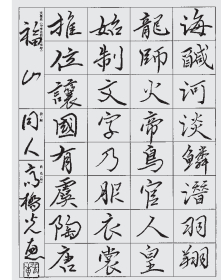 海醎河淡鱗潛羽翔
龍師火帝鳥官人皇
始制文字乃服衣裳
推位讓國有虞陶唐
福山
同人